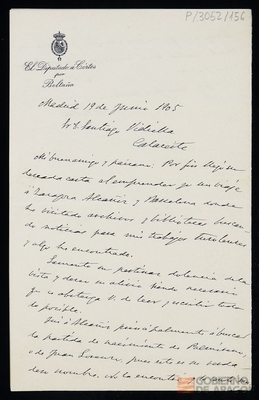 P/3052/156
El Diputado á Córtes
por
Boltaña
Madrid 19 de Junio 1905
Sr D. Santiago Vidiella
Calaceite
Mi buen amigo y paisano: Por fin llegó su
deseada carta al emprender yo un viaje
á Zaragoza Alcañiz y Barcelona donde
he visitado archivos y bibliotecas buscan-
do noticias para mis trabajos
y algo he encontrado.
Lamento su dolencia de la
vista y deseo su alivio siendo necesario
que se abstenga V. de leer y escribir todo
lo posible.
Fuí á Alcañiz principalmente á buscar
la partida de nacimiento de
de Juan Lorenzo, pues este es su
dero nombre, no la encontré
GOBIERNO
DE ARAGON